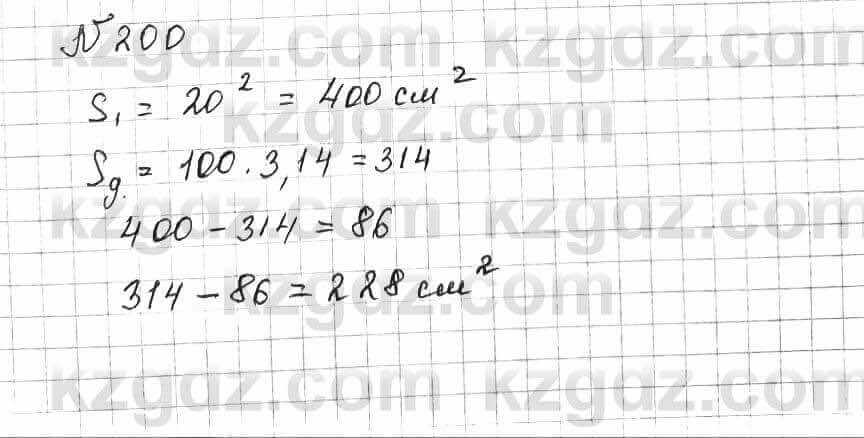 № 200
S₁ = 20² = 400 см²
Sg. = 100 . 3,14 = 314
400 - 314 = 86
314 - 86 = 228 см²
kzgdz.com kzgdz.com
kzgdz.com
kzgdz.com kzgdz.com
kzgdz.com
kzgdz.com kzgdz.com